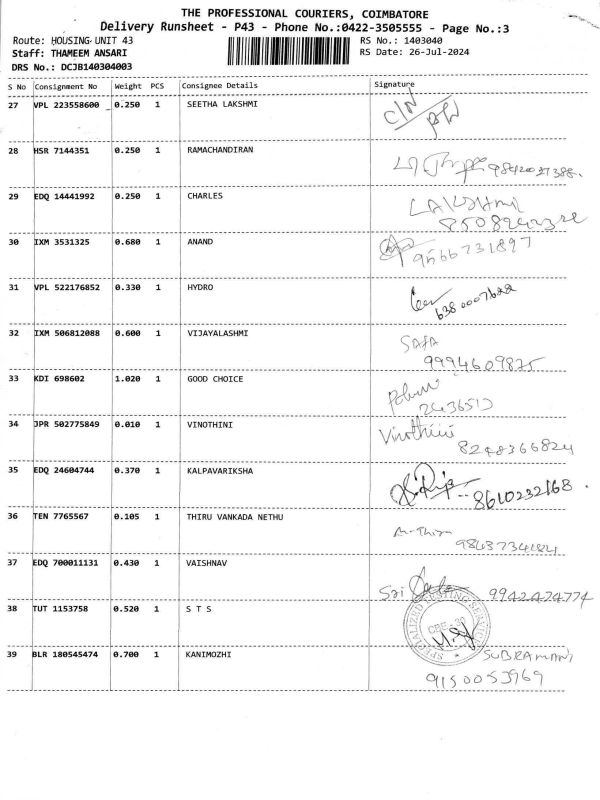 THE PROFESSIONAL COURIERS, COIMBATORE
Delivery Runsheet - P43 - Phone No.:0422-3505555 - Page No.:3
Route: HOUSING UNIT 43 RS No.: 1403040
Staff: THAMEEM ANSARI RS Date: 26-Jul-2024
DRS No.: DCJB140304003
S No Consignment No Weight PCS Consignee Details Signature
27 VPL 223558600 0.250 1 SEETHA LAKSHMI C/N
28 HSR 7144351 0.250 1 RAMACHANDIRAN
29 EDQ 14441992 0.250 1 CHARLES LAKSHMI
30 IXM 3531325 0.680 1 ANAND 9566731897
31 VPL 522176852 0.330 1 HYDRO
32 IXM 506812088 0.600 1 VIJAYALASHMI SAFA
9994609875
33 KDI 698602 1.020 1 GOOD CHOICE
34 JPR 502775849 0.010 1 VINOTHINI Vinothini
8248366824
35 EDQ 24604744 0.370 1 KALPAVARIKSHA 8610232168
36 TEN 7765567 0.105 1 THIRU VANKADA NETHU
37 EDQ 700011131 0.430 1 VAISHNAV Sri 9942424774
38 TUT 1153758 0.520 1 S T S SPECIALIZED TESTING SERVICE
39 BLR 180545474 0.700 1 KANIMOZHI SUBRAMANI
9150053969